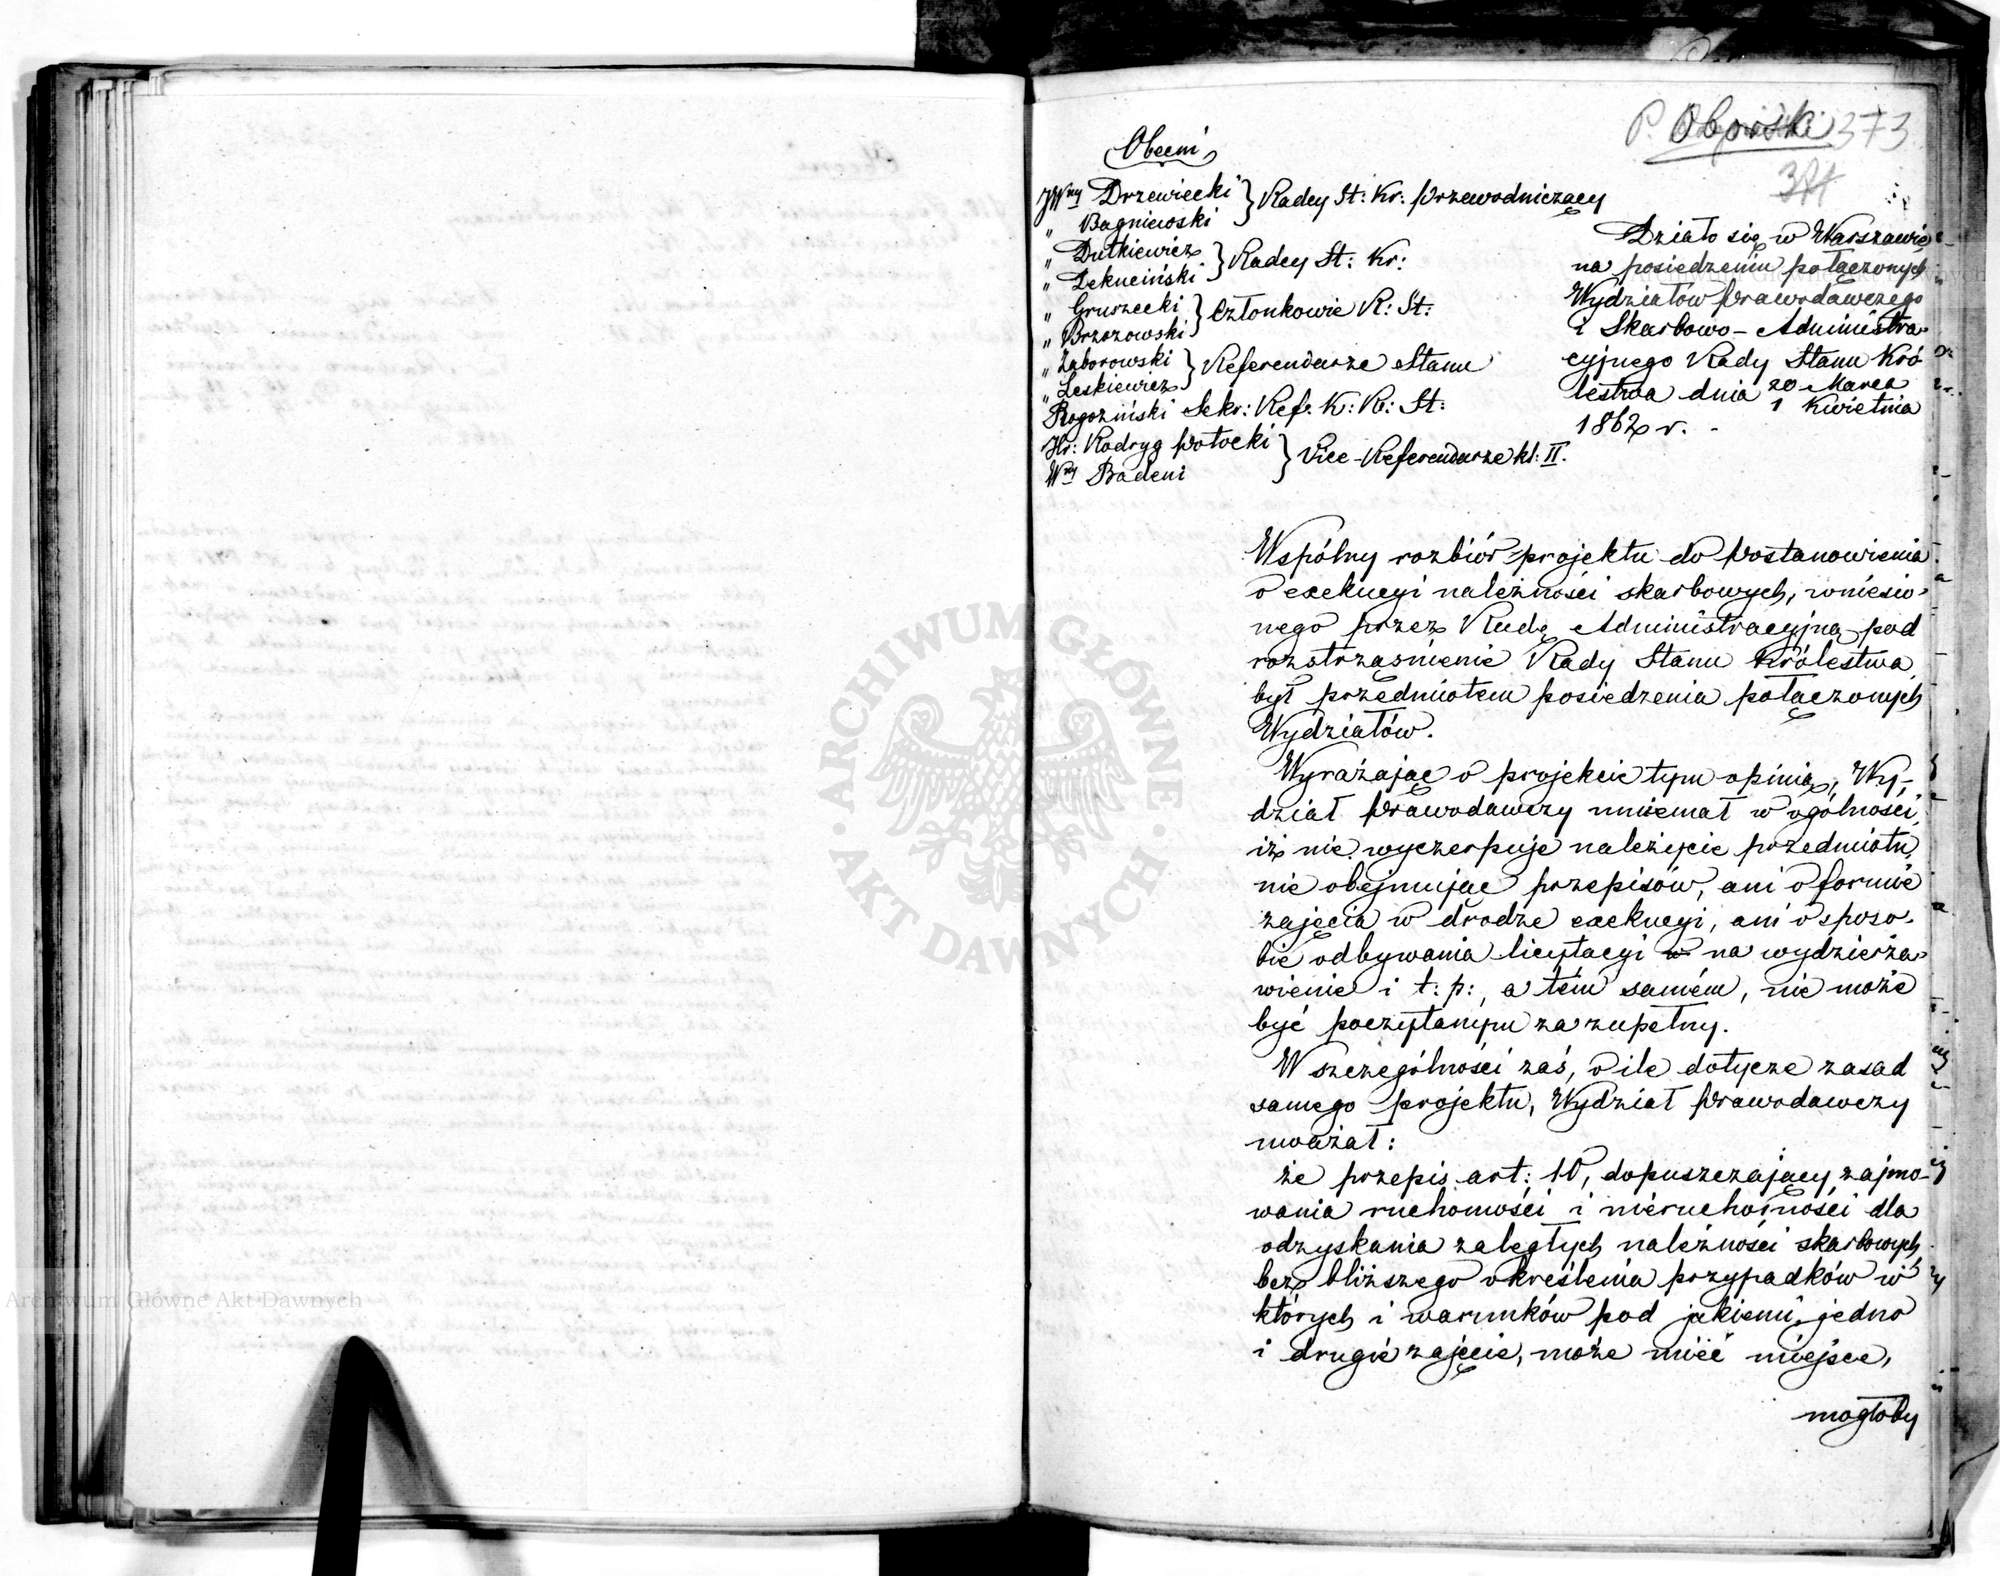 373
Obecni
JWny Drzewiecki } Radcy St: Kr: Przewodniczący
" Bagniewski
" Dutkiewicz } Radcy St: Kr:
" Dekuciński
" Gruszecki } Członkowie R: St:
" Brzozowski
" Zaborowski } Referendarze Stanu
" Leskiewicz
Rogoziński Sekr: Ref. K: R: St:
Hr: Rodryg Potocki } Vice-Referendarze kl: II.
Wny Badeni
Działo się w Warszawie
na posiedzeniu połączonych
Wydziałów Prawodawczego
i Skarbowo-Administra-
cyjnego Rady Stanu Kró-
lestwa dnia 20 Marca
1 Kwietnia
1862 r. -
Wspólny rozbiór projektu do Postanowienia
o exekucyi należności skarbowych, wniesio-
nego przez Radę Administracyjną pod
roztrząśnienie Rady Stanu Królestwa,
był przedmiotem posiedzenia połączonych
Wydziałów.
Wyrażając o projekcie tym opinią, Wy-
dział Prawodawczy mniemał w ogólności,
iż nie wyczerpuje należycie przedmiotu,
nie obejmując przepisów, ani o formie
zajęcia w drodze exekucyi, ani o sposo-
bie odbywania licytacyi na wydzierża-
wienie i t: p:, a tém samém, nie może
być poczytanym za zupełny.
W szczególności zaś, o ile dotycze zasad
samego projektu, Wydział Prawodawczy
uważał:
że przepis art: 10, dopuszczający zajmo-
wania ruchomości i nieruchomości dla
odzyskania zaległych należności skarbowych,
bez bliższego określenia przypadków w
których i warunków pod jakiemi jedno
i drugie zajęcie, może mieć miejsce,
mogłoby
Archiwum Główne Akt Dawnych
ARCHIWUM GŁÓWNE · AKT DAWNYCH ·